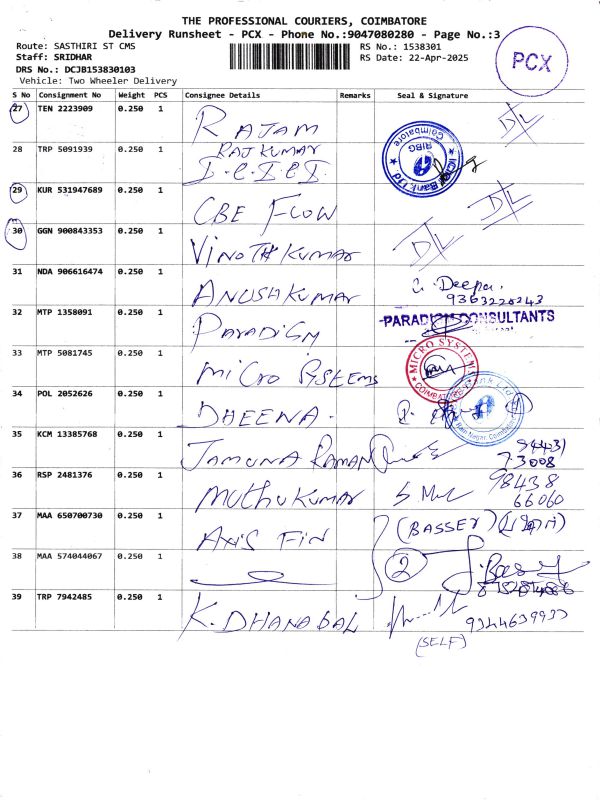 THE PROFESSIONAL COURIERS, COIMBATORE
Delivery Runsheet - PCX - Phone No.:9047080280 - Page No.:3
Route: SASTHIRI ST CMS RS No.: 1538301
Staff: SRIDHAR RS Date: 22-Apr-2025
DRS No.: DCJB153830103
Vehicle: Two Wheeler Delivery
PCX
S No Consignment No Weight PCS Consignee Details Remarks Seal & Signature
27 TEN 2223909 0.250 1 RAJAM D/L
28 TRP 5091939 0.250 1 RAJKUMAR
I.C.I.C.I.
ICICI Bank Ltd RIBG Coimbatore
29 KUR 531947689 0.250 1 CBE FLOW D/L
30 GGN 900843353 0.250 1 VINOTH KUMAR D/L
31 NDA 906616474 0.250 1 ANUSH KUMAR Deepa.
9363220243
32 MTP 1358091 0.250 1 PARADIGM PARADIGM CONSULTANTS
33 MTP 5081745 0.250 1 MICRO SYSTEMS MICRO SYSTEMS COIMBATORE
34 POL 2052626 0.250 1 DHEENA.
35 KCM 13385768 0.250 1 JAMUNA RAMAN 94431
73008
36 RSP 2481376 0.250 1 MUTHUKUMAR 98438
66060
37 MAA 650700730 0.250 1 AXIS FIN (BASSER)
38 MAA 574044067 0.250 1 2
39 TRP 7942485 0.250 1 K. DHANABAL 9344639933
(SELF)